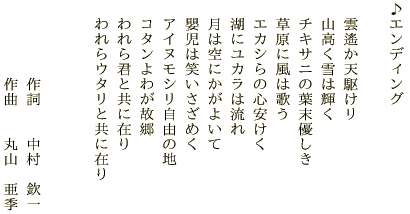 ♪エンディング
雲遙か天駆けり
山高く雪は輝く
チキサニの葉末優しき
草原に風は歌う
エカシらの心安けく
湖にユカラは流れ
月は空にかがよいて
嬰児は笑いさざめく
アイヌモシリ自由の地
コタンよわが故郷
われら君と共に在り
われらウタリと共に在り
作詞　中村　欽一
作曲　丸山　亜季